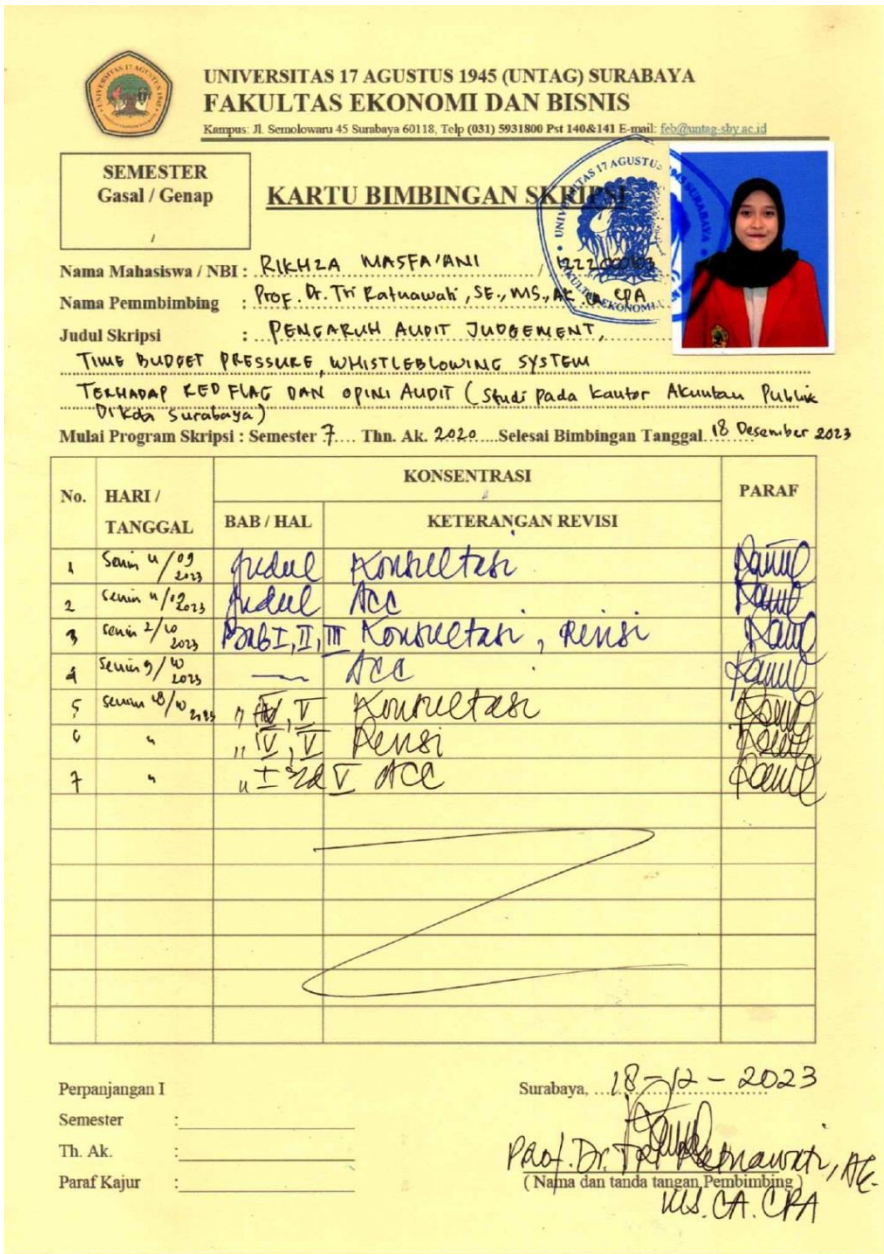 UNIVERSITAS 17 AGUSTUS 1945 (UNTAG) SURABAYA
FAKULTAS EKONOMI DAN BISNIS
Kampus: Jl. Semolowaru 45 Surabaya 60118, Telp (031) 5931800 Pst 140&141 E-mail: feb@untag-sby.ac.id
SEMESTER
Gasal / Genap
/
KARTU BIMBINGAN SKRIPSI
Nama Mahasiswa / NBI : RIKHZA MASFA'ANI /
Nama Pemmbimbing : Prof. Dr. Tri Ratnawati, SE., MS., AK CA CPA
Judul Skripsi : PENGARUH AUDIT JUDGEMENT,
TIME BUDGET PRESSURE, WHISTLEBLOWING SYSTEM
TERHADAP RED FLAG DAN OPINI AUDIT (Studi pada Kantor Akuntan Publik
Di Kota Surabaya)
Mulai Program Skripsi : Semester 7 Thn. Ak. 2020 Selesai Bimbingan Tanggal 18 Desember 2023
No. HARI / TANGGAL KONSENTRASI PARAF
BAB / HAL KETERANGAN REVISI
1 Senin 4/09 2023 Judul Konsultasi
2 Senin 11/09 2023 Judul ACC
3 Senin 2/10 2023 Bab I, II, III Konsultasi, Revisi
4 Senin 9/10 2023 — ACC
5 Senin 18/10 2023 " IV, V Konsultasi
6 " " IV, V Revisi
7 " " I V ACC
Perpanjangan I
Semester :
Th. Ak. :
Paraf Kajur :
Surabaya, 18-12-2023
Prof. Dr. Tri Ratnawati, AK.
(Nama dan tanda tangan Pembimbing)
MS. CA. CPA